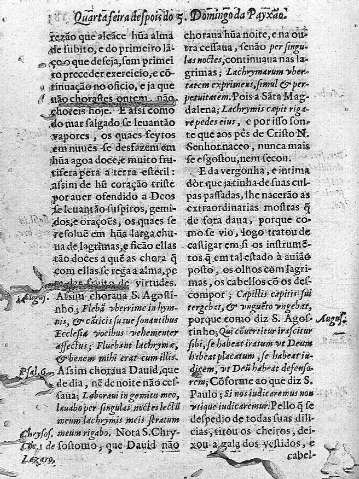 Quarta feira despois do 5. Domingo da Payxão.
rezão que alcãce hũa alma
de subito, e do primeiro lã-
ço o que deseja, sem primei-
ro preceder exercicio, e cõ-
tinuação no oficio, e ja que
não chorastes ontem, não
choreis hoje. E assi como
do mar salgado se leuantão
vapores, os quaes feytos
em nuues se desfazem em
hũa agoa doce, e muito fru-
tifera pera a terra esteril:
assim de hũ coração triste
por auer ofendido a Deos
se leuantão suspiros, gemi-
dos, e orações, os quaes se
resoluem em hũa larga chu-
ua de lagrimas, e ficão ellas
tão doces a que as chora q̃
com ellas se rega a alma, pe-
ra dar fruito de virtudes.
August. Assim choraua S. Agosti-
nho; Flebã vberrime in hym-
nis, & cãticis suaue sonantibus
Ecclesiæ vocibus vehementer
affectus; Fluebant lachrymæ,
& benem mihi erat cum illis.
Psal. 6. Assim choraua Dauid, que
de dia, nẽ de noite não ces-
saua; Laboraui in gemitu meo,
lauabo per singulas noctes lectũ
meum lachrymis meis stratum
Chrysos. meum rigabo. Nota S. Chry-
sostomo, que Dauid não
Lazaro.
choraua hũa noite, e na ou-
tra cessaua, senão per singu-
las noctes, continuaua nas la-
grimas; Lachrymarum vber-
tatem exprimens, simul & per-
petuitatem. Pois a Sãta Mag-
dalena; Lachrymis cæpit riga-
re pedes eius, e por isso son-
te que aos pès de Cristo N.
Senhor naceo, nunca mais
se esgotou, nem secou.
E da vergonha, e intima
dor que ja tinha de suas cul-
pas passadas, lhe nacerão as
extraordinarias mostras q̃
de fora daua, porque co-
mo se vio, logo tratou de
castigar em si os instrumẽ-
tos q̃ em tal estado à auião
posto, os olhos com lagri-
mas, os cabellos cõ os des-
compor; Capillis capitis sui
tergebat, & vnguẽto vngebat,
porque como diz S. Agos- August.
tinho; Qui cõuertitur irascitur
sibi, se habeat iratum vt Deum
habeat placatum, se habeat iu-
dicem, vt Deũ habeat defenso-
rem; Cõforme ao que diz S.
Paulo; Si nos iudicaremus non
vtique iudicaremur. Pello q̃ se
despedio de todas suas dili-
cias, tirou os cheiros, dei-
xou a gala dos vestidos, e
cabel-